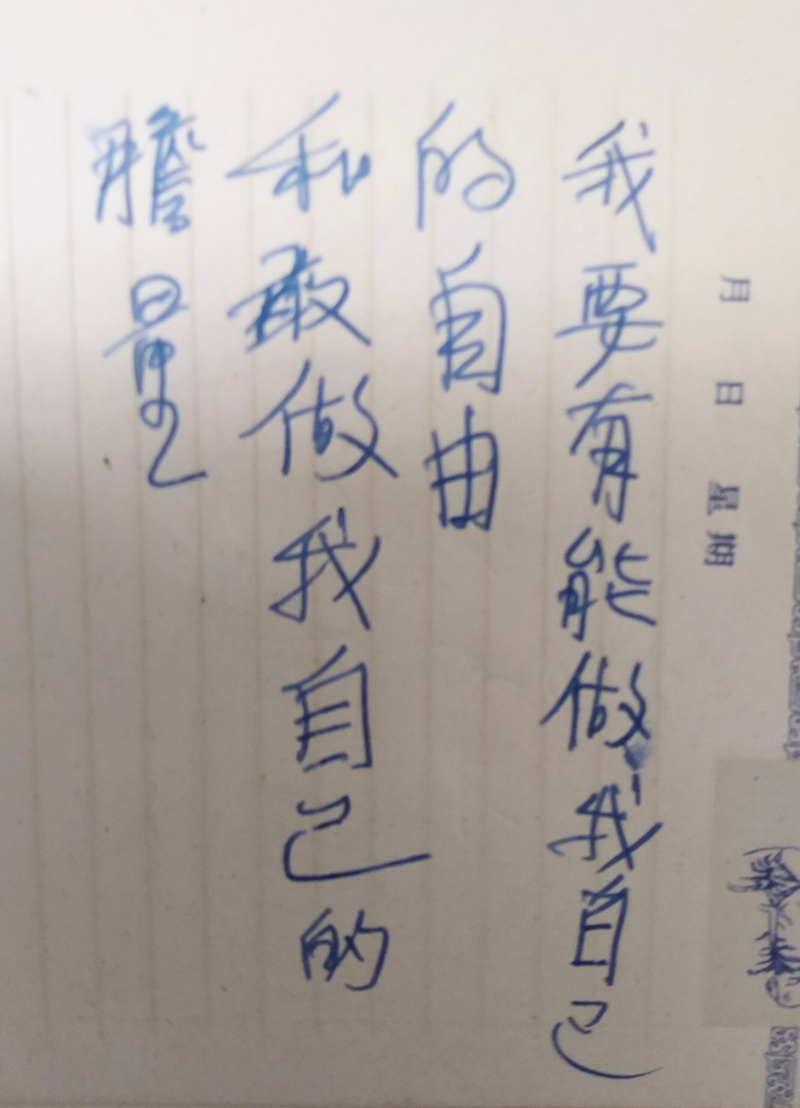 我要有能做我自己
的自由
和敢做我自己的
膽量
月 日 星期